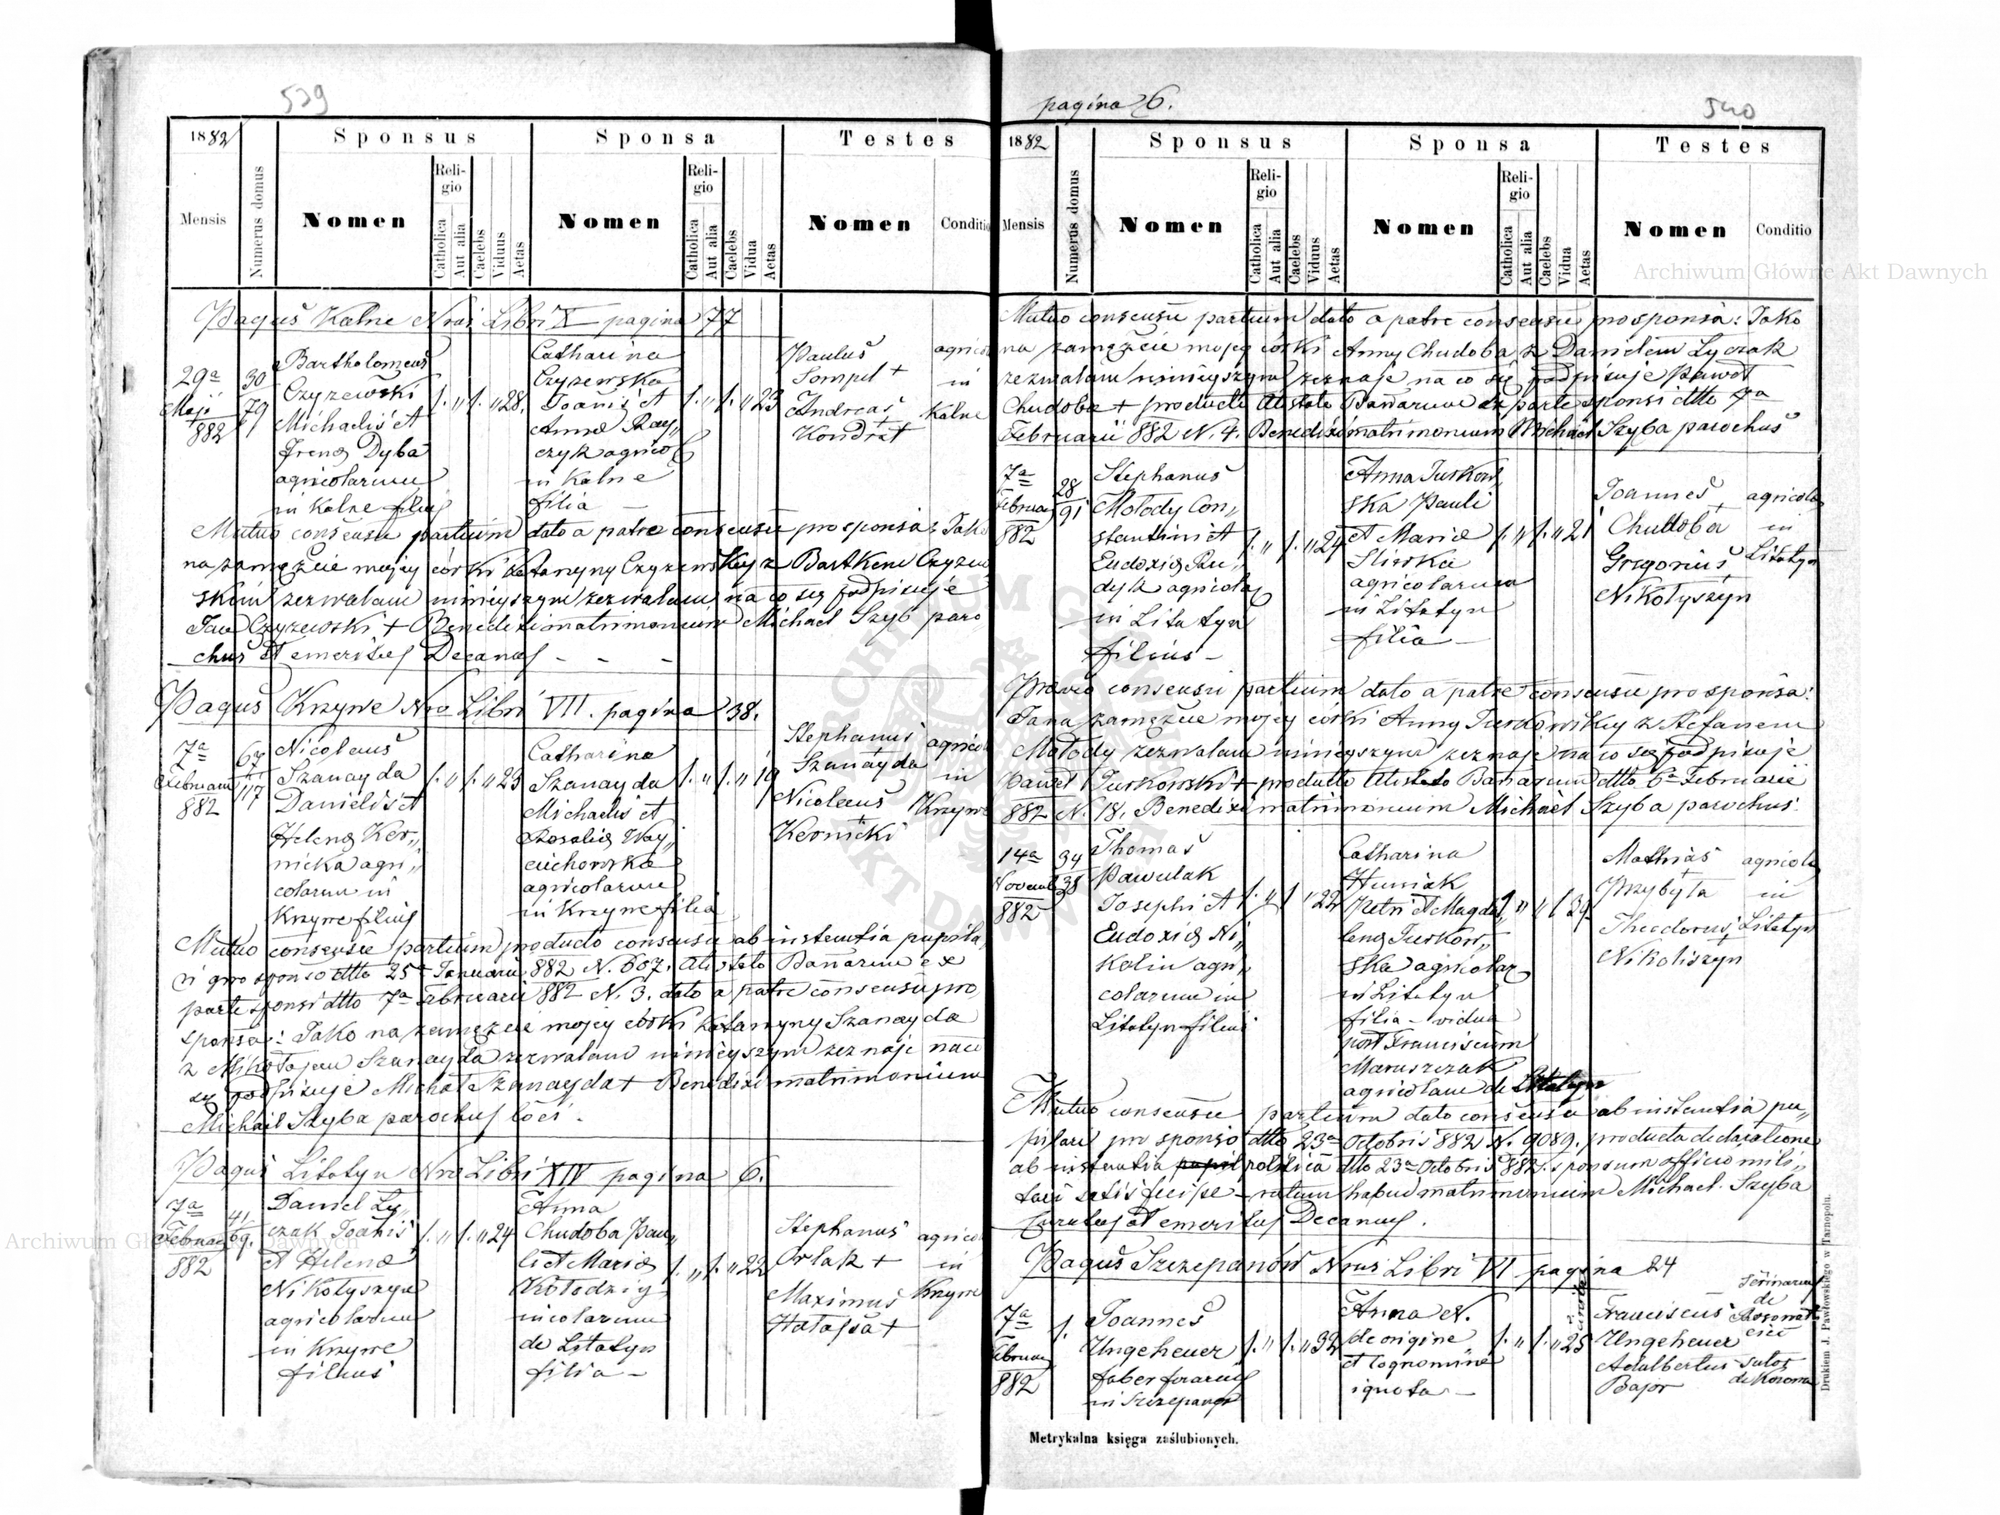 539
1882
Sponsus
Sponsa
Testes
Mensis
Numerus domus
Nomen
Religio
Catholica
Aut alia
Caelebs
Viduus
Aetas
Nomen
Religio
Catholica
Aut alia
Caelebs
Vidua
Aetas
Nomen
Conditio
Pagus Kalne Nrus Libri X pagina 77
29a
Maji
882
30
79
Bartholomeus
Czyzewski
Michaelis et
Irena Dyba
agricolarum
in Kalne filius
28.
Catharina
Czyzewska
Joannis et
Anna Ray,,
czyk agricol
in Kalne
filia —
23
Paulus
Sompel +
Andreas
Kondrat
agricol
in
Kalne
Mutuo consensu partium dato a patre consensu pro sponsa: Jako
na zamęźcie mojej córki Katarzyny Czyzewskej z Bartkem Czyzew
skim zezwalam niniejszym zezwalam na co się podpisuje
Jan Czyzewski + Benedixi matrimonium Michael Szyb paro
chus et emeritus Decanus - - -
Pagus Krzywe Nro Libri VII. pagina 38.
7a
Februarii
882
67
117
Nicolaus
Szanayda
Danielis et
Helena Ker,,
nicka agri,,
colarum in
Krzywe filius
23
Catharina
Szanayda
Michaelis et
Rosalia Woy,,
ciichowska
agricolarum
in Krzywe filia
19
Stephanus
Szanayda
Nicolaus
+
Kernicki
agricol
in
Krzywe
Mutuo consensu partium producto consensu ab instantia pupila,
ri pro sponso dtto 25a Januarii 882 N. 607. Atistato Banarum ex
parte sponsi dtto 7a Februarii 882 N. 3. dato a patre consensu pro
sponsa: Jako na zamęzcie mojey córki Katarzyny Szanayda
z Mikołajem Szanayda zezwalam niniejszym zeznaje na co
się podpisuje Michał Szanayda + Benedixi matrimonium
Michael Szyba parochus loci.
Pagus Litatyn Nro Libri XIV pagina 6.
7a
Februar
882
41
69.
Daniel Ly,,
czak Joanis
et Helena
Nikolyszyn
agricolarum
in Krzywe
filius
24
Anna
Chudoba Pau,,
li et Maria
Kołodziy
incolarum
de Litatyn
filia —
22
Stephanus
Orlak +
Maximus
Hałaba +
agricol
in
Krzywe
pagina 6.
540
1882
Sponsus
Sponsa
Testes
Mensis
Numerus domus
Nomen
Religio
Catholica
Aut alia
Caelebs
Viduus
Aetas
Nomen
Religio
Catholica
Aut alia
Caelebs
Vidua
Aetas
Nomen
Conditio
Mutuo consensu partium dato a patre consensu pro sponsa: Jako
na zamęźcie mojej córki Anny Chudoba z Danielem Lyczak
zezwalam niniejszym zeznaje na co się podpisuje Paweł
Chudoba + producto Atistato Banarum ex parte sponsi dtto 7a
Februarii 882 N. 4. Benedixi matrimonium Michael Szyba parochus
7a
Februar
882
28
91
Stephanus
Młody Con,,
stantini et
Eudoxia Ru,,
dyk agricola
in Litatyn
filius —
24
Anna Turkow,,
ska Pauli
et Maria
Sliwka
agricolarum
in Litatyn
filia —
21
Joannes
+
Chudoba
Gregorius
+
Nikołyszyn
agricola
in
Litatyn
Previo consensu partium dato a patre consensu pro sponsa:
Jana zamęźcie mojej córki Anny Turkowskiey z Stefanem
Młody zezwalam niniejszym zeznaje na co się podpisuje
Paweł Turkowski + producto Atistato Banarum dtto 6a Februarii
882 N. 18. Benedixi matrimonium Michael Szyba parochus.
14a
Novemb
882
34
38
Thomas
Pawulak
Josephi et
Eudoxia Ni,,
kolin agri,,
colarum in
Litatyn filius
22
Catharina
Huniak
Petri et Magda,,
lena Turkow,,
ska agricolar
in Litatyn
filia - vidua
post Franciscum
Maruszczak
agricolam de Litatyn
34
Mathias
+
Przybyła
Theodorus
+
Nikoliszyn
agricola
in
Litatyn
Mutuo consensu partium dato consensu ab instantia pu,,
pilari pro sponso dtto 23a Octobris 882 N. 9089. producta declaratione
ab instantia politica dtto 23a Octobris 882. sponsum officio mili,,
tari satisfecisse - ratum habui matrimonium Michael Szyba
Curatus et emeritus Decanus.
Pagus Szczepanów Nrus Libri VI pagina 24
7a
Februar
882
1.
Joannes
Ungeheuer
faber ferarius
in Szczepanów
32
Anna N.
de origine
et cognomine
ignota —
25
Franciscus
Ungeheuer
Adalbertus
Bajor
de
sutor
de Kozowa
Metrykalna księga zaślubionych.
Drukiem J. Pawłowskiego w Tarnopolu.
Archiwum Główne Akt Dawnych
Archiwum Główne Akt Dawnych
ARCHIWUM GŁÓWNE AKT DAWNYCH